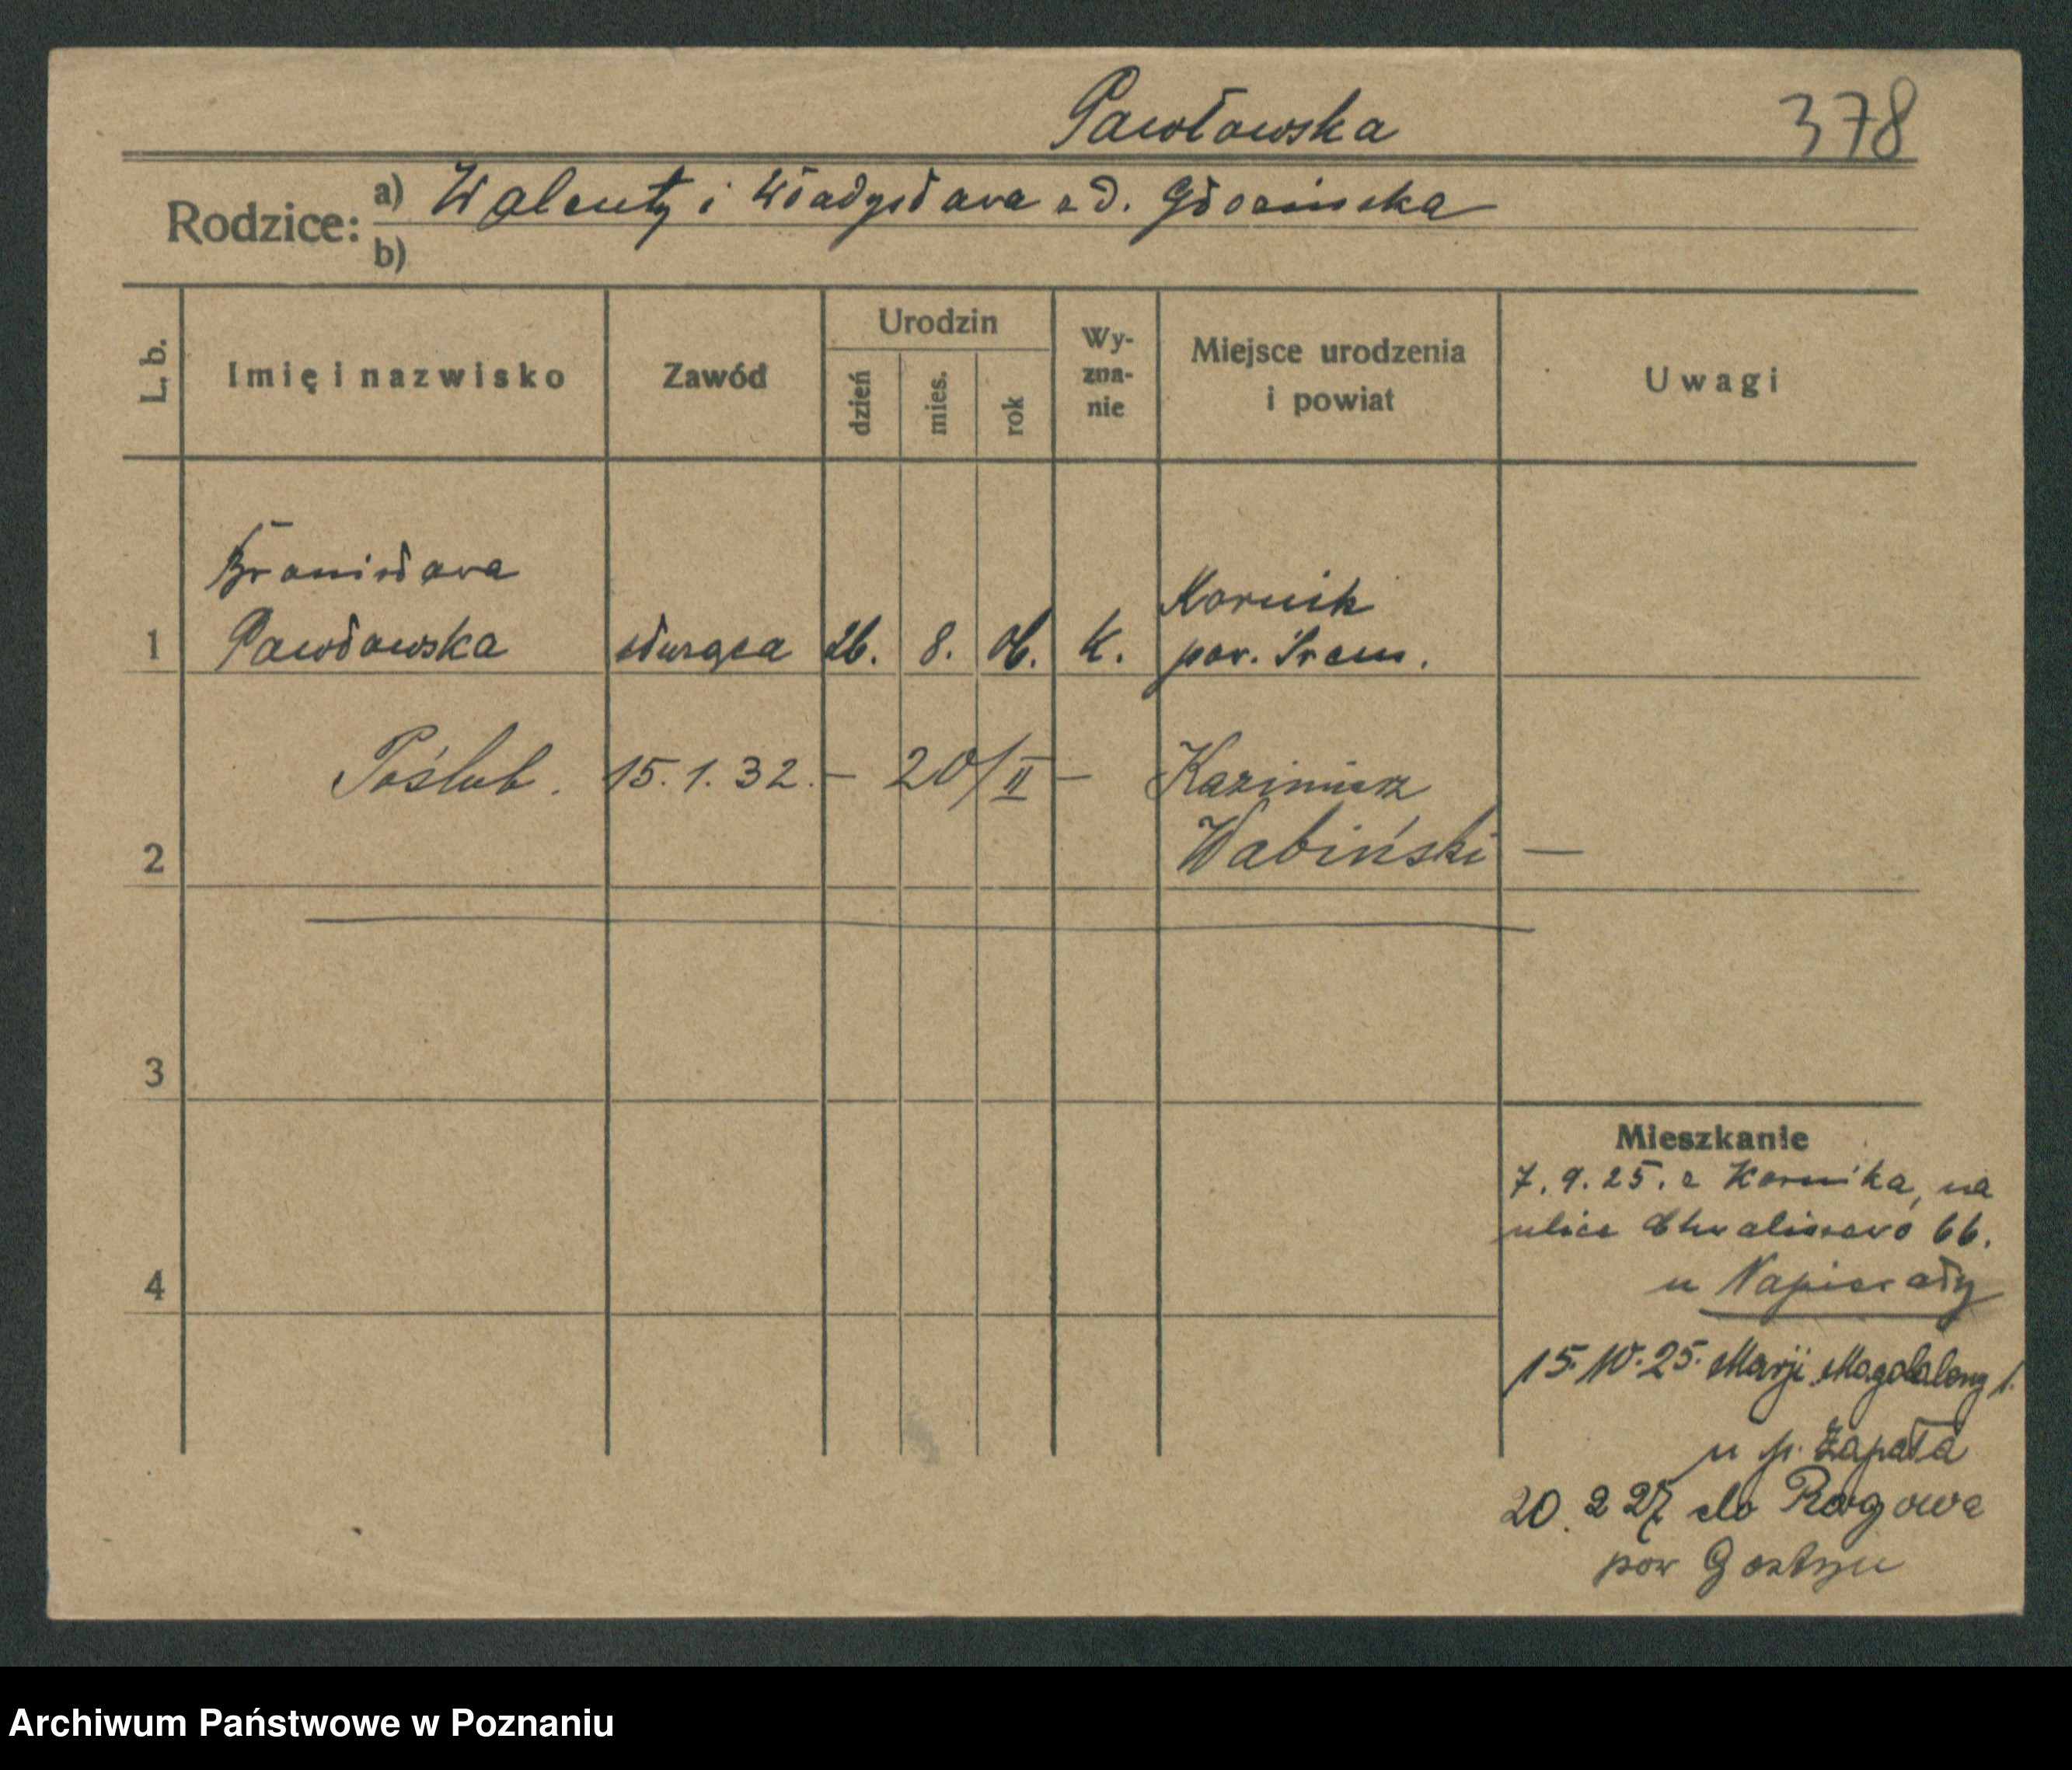 Pawłowska 378
Rodzice: a) Walenty i Władysława z d.
b)
L. b. Imię i nazwisko Zawód Urodzin dzień mies. rok Wy-zna-nie Miejsce urodzenia i powiat Uwagi
Bronisława Kornik
1 Pawłowska służąca 26. 8. 06. K. pow. Śrem.
Poślub. 15.1.32. – 20/II – Kazimierz
2 Wabiński –
3
Mieszkanie
7.9.25. z Kornika, na
ulice Chwaliszewo 66.
4 u
15.10.25. Marji Magdaleny 1.
u p. Zapała
20.2 27 do
pow Gostyn
Archiwum Państwowe w Poznaniu